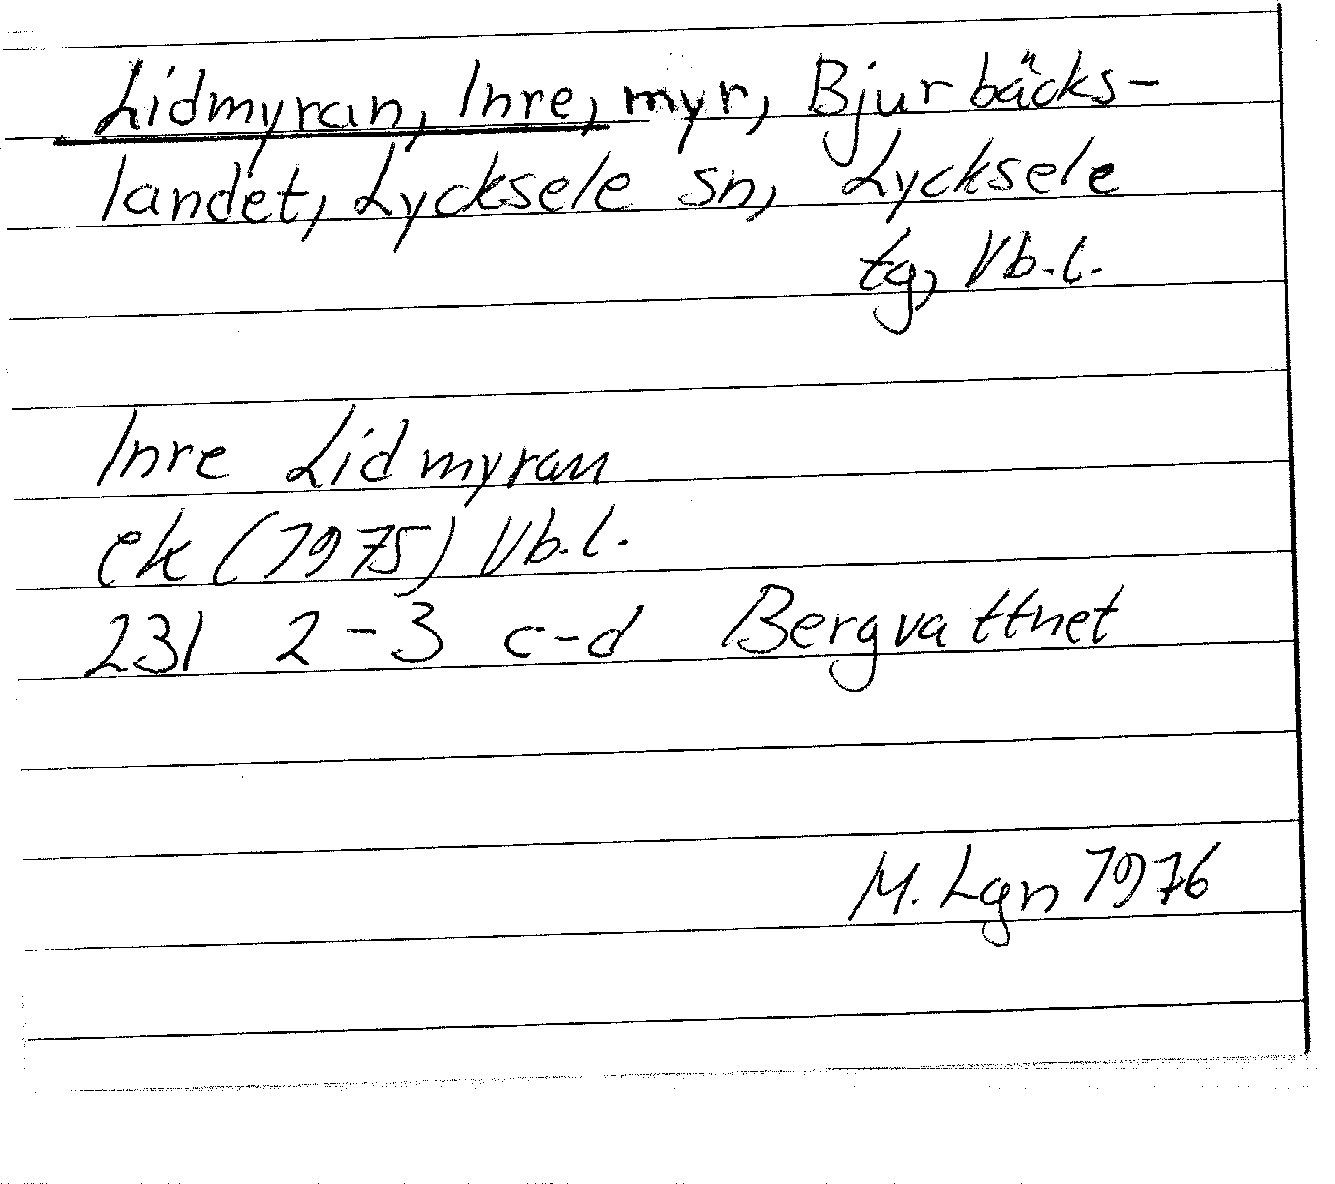 Lidmyran, Inre, myr, Bjurbäcks-
landet, Lycksele sn, Lycksele
tg, Vb.l.
Inre Lidmyran
ek (1975) Vb.l.
231 2-3 c-d Bergvattnet
M. Lgn 1976